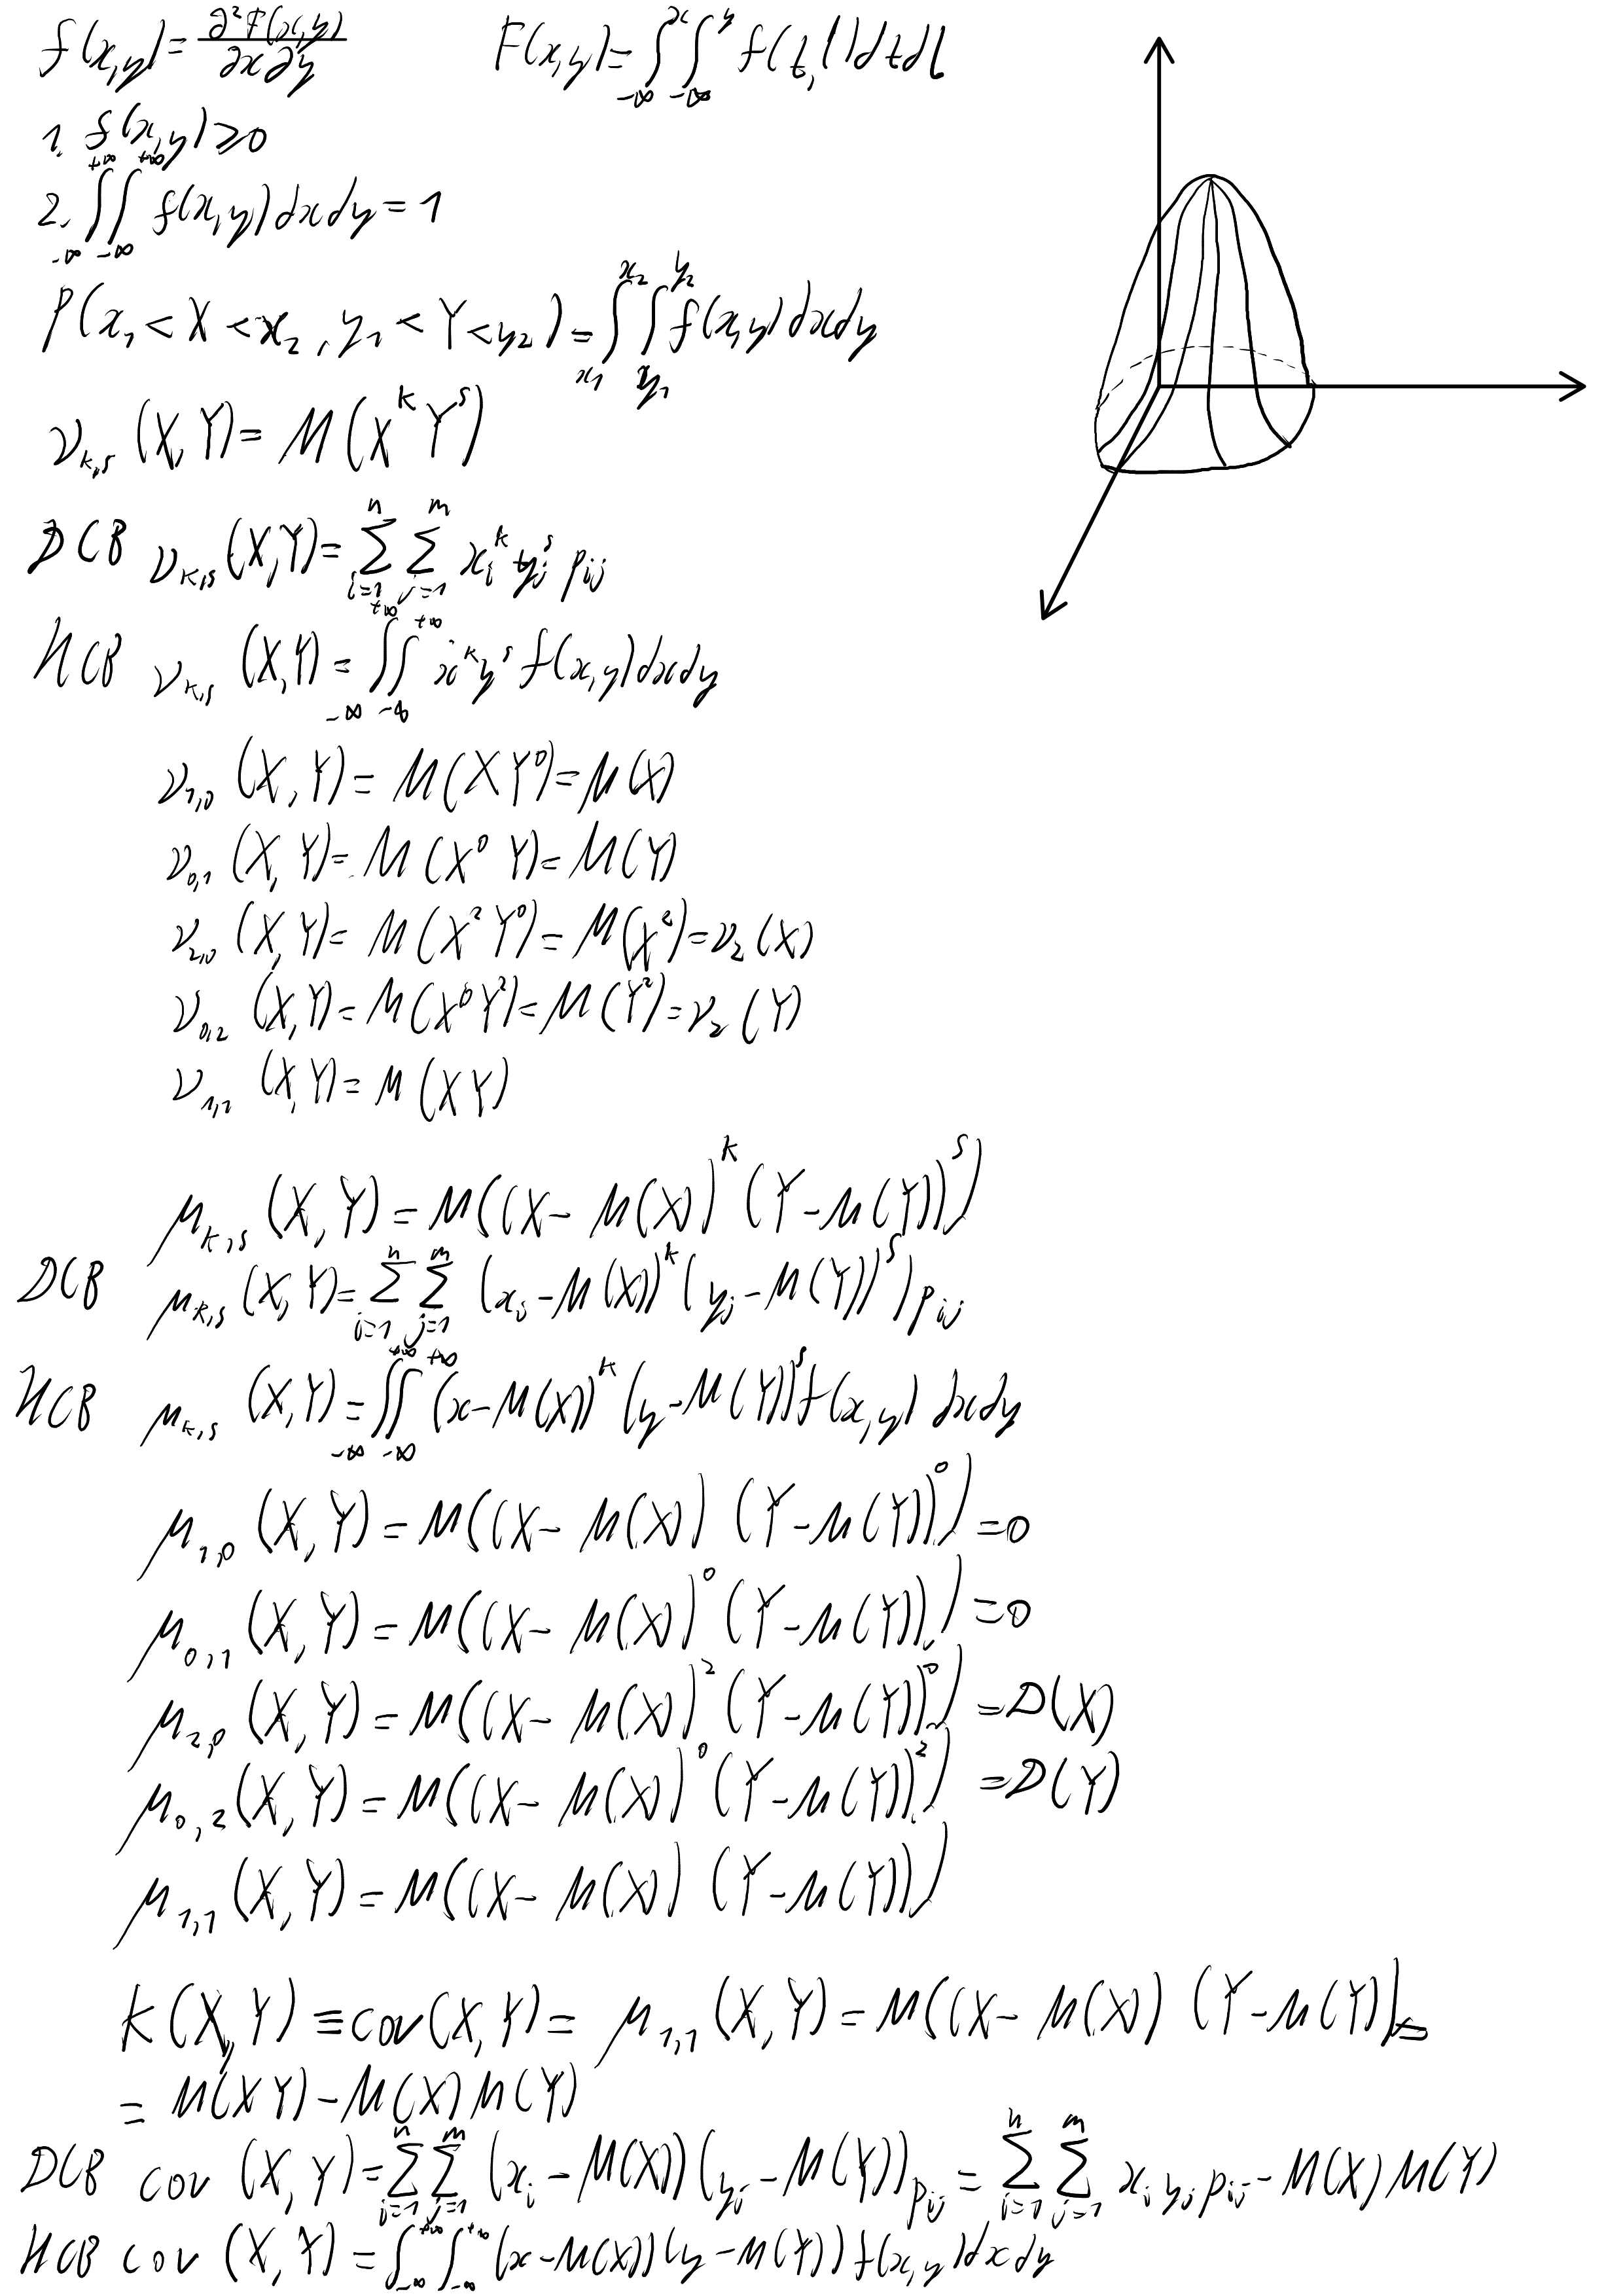 f(x,y)=∂²F(x,y)/∂x∂y F(x,y)=∫_{-∞}^{x}∫_{-∞}^{y} f(t,l)dtdl
1. f(x,y)≥0
2. ∫_{-∞}^{+∞}∫_{-∞}^{+∞} f(x,y)dxdy=1
P(x₁<X<x₂, y₁<Y<y₂)=∫_{x₁}^{x₂}∫_{y₁}^{y₂} f(x,y)dxdy
ν_{k,s}(X,Y)=M(X^k Y^s)
ДСВ ν_{k,s}(X,Y)=∑_{i=1}^{n}∑_{j=1}^{m} x_i^k y_j^s p_{ij}
НСВ ν_{k,s}(X,Y)=∫_{-∞}^{+∞}∫_{-∞}^{+∞} x^k y^s f(x,y)dxdy
ν_{1,0}(X,Y)=M(XY⁰)=M(X)
ν_{0,1}(X,Y)=M(X⁰Y)=M(Y)
ν_{2,0}(X,Y)=M(X²Y⁰)=M(X²)=ν₂(X)
ν_{0,2}(X,Y)=M(X⁰Y²)=M(Y²)=ν₂(Y)
ν_{1,1}(X,Y)=M(XY)
μ_{k,s}(X,Y)=M((X-M(X))^k (Y-M(Y))^s)
ДСВ μ_{k,s}(X,Y)=∑_{i=1}^{n}∑_{j=1}^{m} (x_i-M(X))^k (y_j-M(Y))^s) p_{ij}
НСВ μ_{k,s}(X,Y)=∫_{-∞}^{+∞}∫_{-∞}^{+∞} (x-M(X))^k (y-M(Y))^s f(x,y) dxdy
μ_{1,0}(X,Y)=M((X-M(X)) (Y-M(Y))⁰)=0
μ_{0,1}(X,Y)=M((X-M(X))⁰ (Y-M(Y)))=0
μ_{2,0}(X,Y)=M((X-M(X))² (Y-M(Y))⁰)=D(X)
μ_{0,2}(X,Y)=M((X-M(X))⁰ (Y-M(Y))²)=D(Y)
μ_{1,1}(X,Y)=M((X-M(X)) (Y-M(Y)))
K(X,Y)≡cov(X,Y)= μ_{1,1}(X,Y)=M((X-M(X)) (Y-M(Y))=
= M(XY)-M(X)M(Y)
ДСВ cov (X,Y)=∑_{i=1}^{n}∑_{j=1}^{m} (x_i-M(X))(y_j-M(Y))p_{ij}=∑_{i=1}^{n}∑_{j=1}^{m} x_i y_j p_{ij}-M(X)M(Y)
НСВ cov (X,Y)=∫_{-∞}^{+∞}∫_{-∞}^{+∞}(x-M(X))(y-M(Y))f(x,y)dxdy